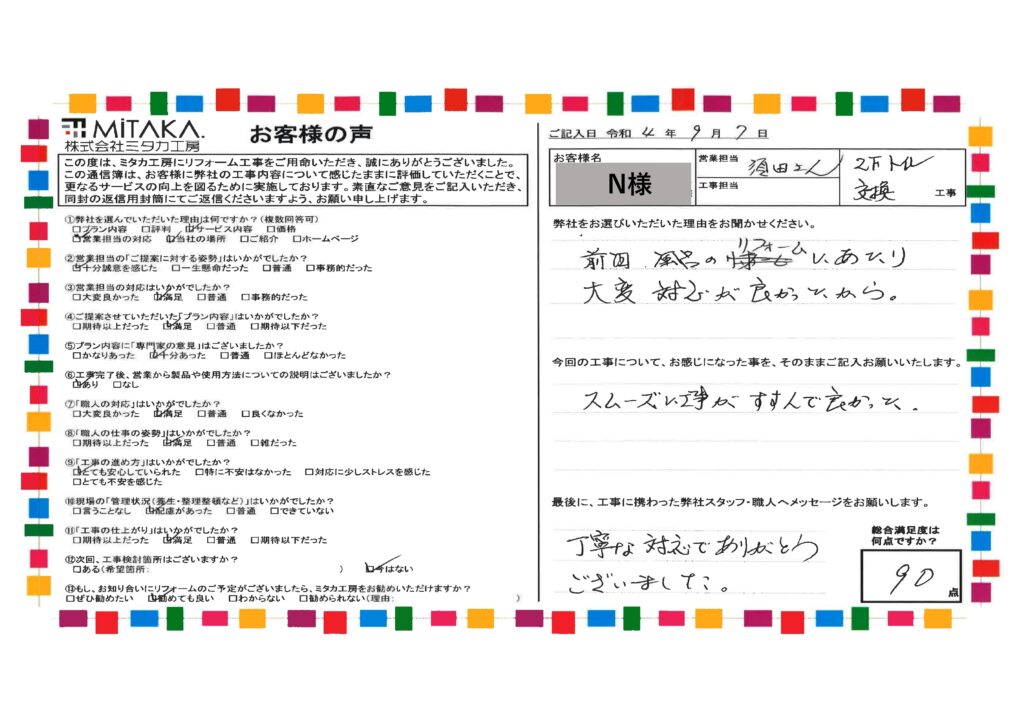 MiTAKA.
株式会社ミタカ工房
お客様の声
この度は、ミタカ工房にリフォーム工事をご用命いただき、誠にありがとうございました。
この通信簿は、お客様に弊社の工事内容について感じたままに評価していただくことで、
更なるサービスの向上を図るために実施しております。素直なご意見をご記入いただき、
同封の返信用封筒にてご返信くださいますよう、お願い申し上げます。
①弊社を選んでいただいた理由は何ですか？(複数回答可)
□プラン内容 □評判 ☑サービス内容 □価格
☑営業担当の対応 ☑当社の場所 □ご紹介 □ホームページ
②営業担当の「ご提案に対する姿勢」はいかがでしたか？
☑十分誠意を感じた □一生懸命だった □普通 □事務的だった
③営業担当の対応はいかがでしたか？
□大変良かった ☑満足 □普通 □事務的だった
④ご提案させていただいた「プラン内容」はいかがでしたか？
□期待以上だった ☑満足 □普通 □期待以下だった
⑤プラン内容に「専門家の意見」はございましたか？
□かなりあった ☑十分あった □普通 □ほとんどなかった
⑥工事完了後、営業から製品や使用方法についての説明はございましたか？
☑あり □なし
⑦「職人の対応」はいかがでしたか？
□大変良かった ☑満足 □普通 □良くなかった
⑧「職人の仕事の姿勢」はいかがでしたか？
□期待以上だった ☑満足 □普通 □雑だった
⑨「工事の進め方」はいかがでしたか？
☑とても安心していられた □特に不安はなかった □対応に少しストレスを感じた
□とても不安を感じた
⑩現場の「管理状況(養生・整理整頓など)」はいかがでしたか？
□言うことなし ☑配慮があった □普通 □できていない
⑪「工事の仕上がり」はいかがでしたか？
□期待以上だった ☑満足 □普通 □期待以下だった
⑫次回、工事検討箇所はございますか？
□ある(希望箇所: ) ☑今はない
⑬もし、お知り合いにリフォームのご予定がございましたら、ミタカ工房をお勧めいただけますか？
□ぜひ勧めたい ☑勧めても良い □わからない □勧められない(理由: )
ご記入日 令和 4 年 9 月 7 日
お客様名
N様
営業担当 須田さん
工事担当
交換 工事
弊社をお選びいただいた理由をお聞かせください。
リフォーム
前回 風呂の にあたり
大変 対応が 良かったから。
今回の工事について、お感じになった事を、そのままご記入お願いいたします。
スムーズに工事が すすんで良かった。
最後に、工事に携わった弊社スタッフ・職人へメッセージをお願いします。
丁寧な 対応で ありがとう
ございました。
総合満足度は
何点ですか？
90 点